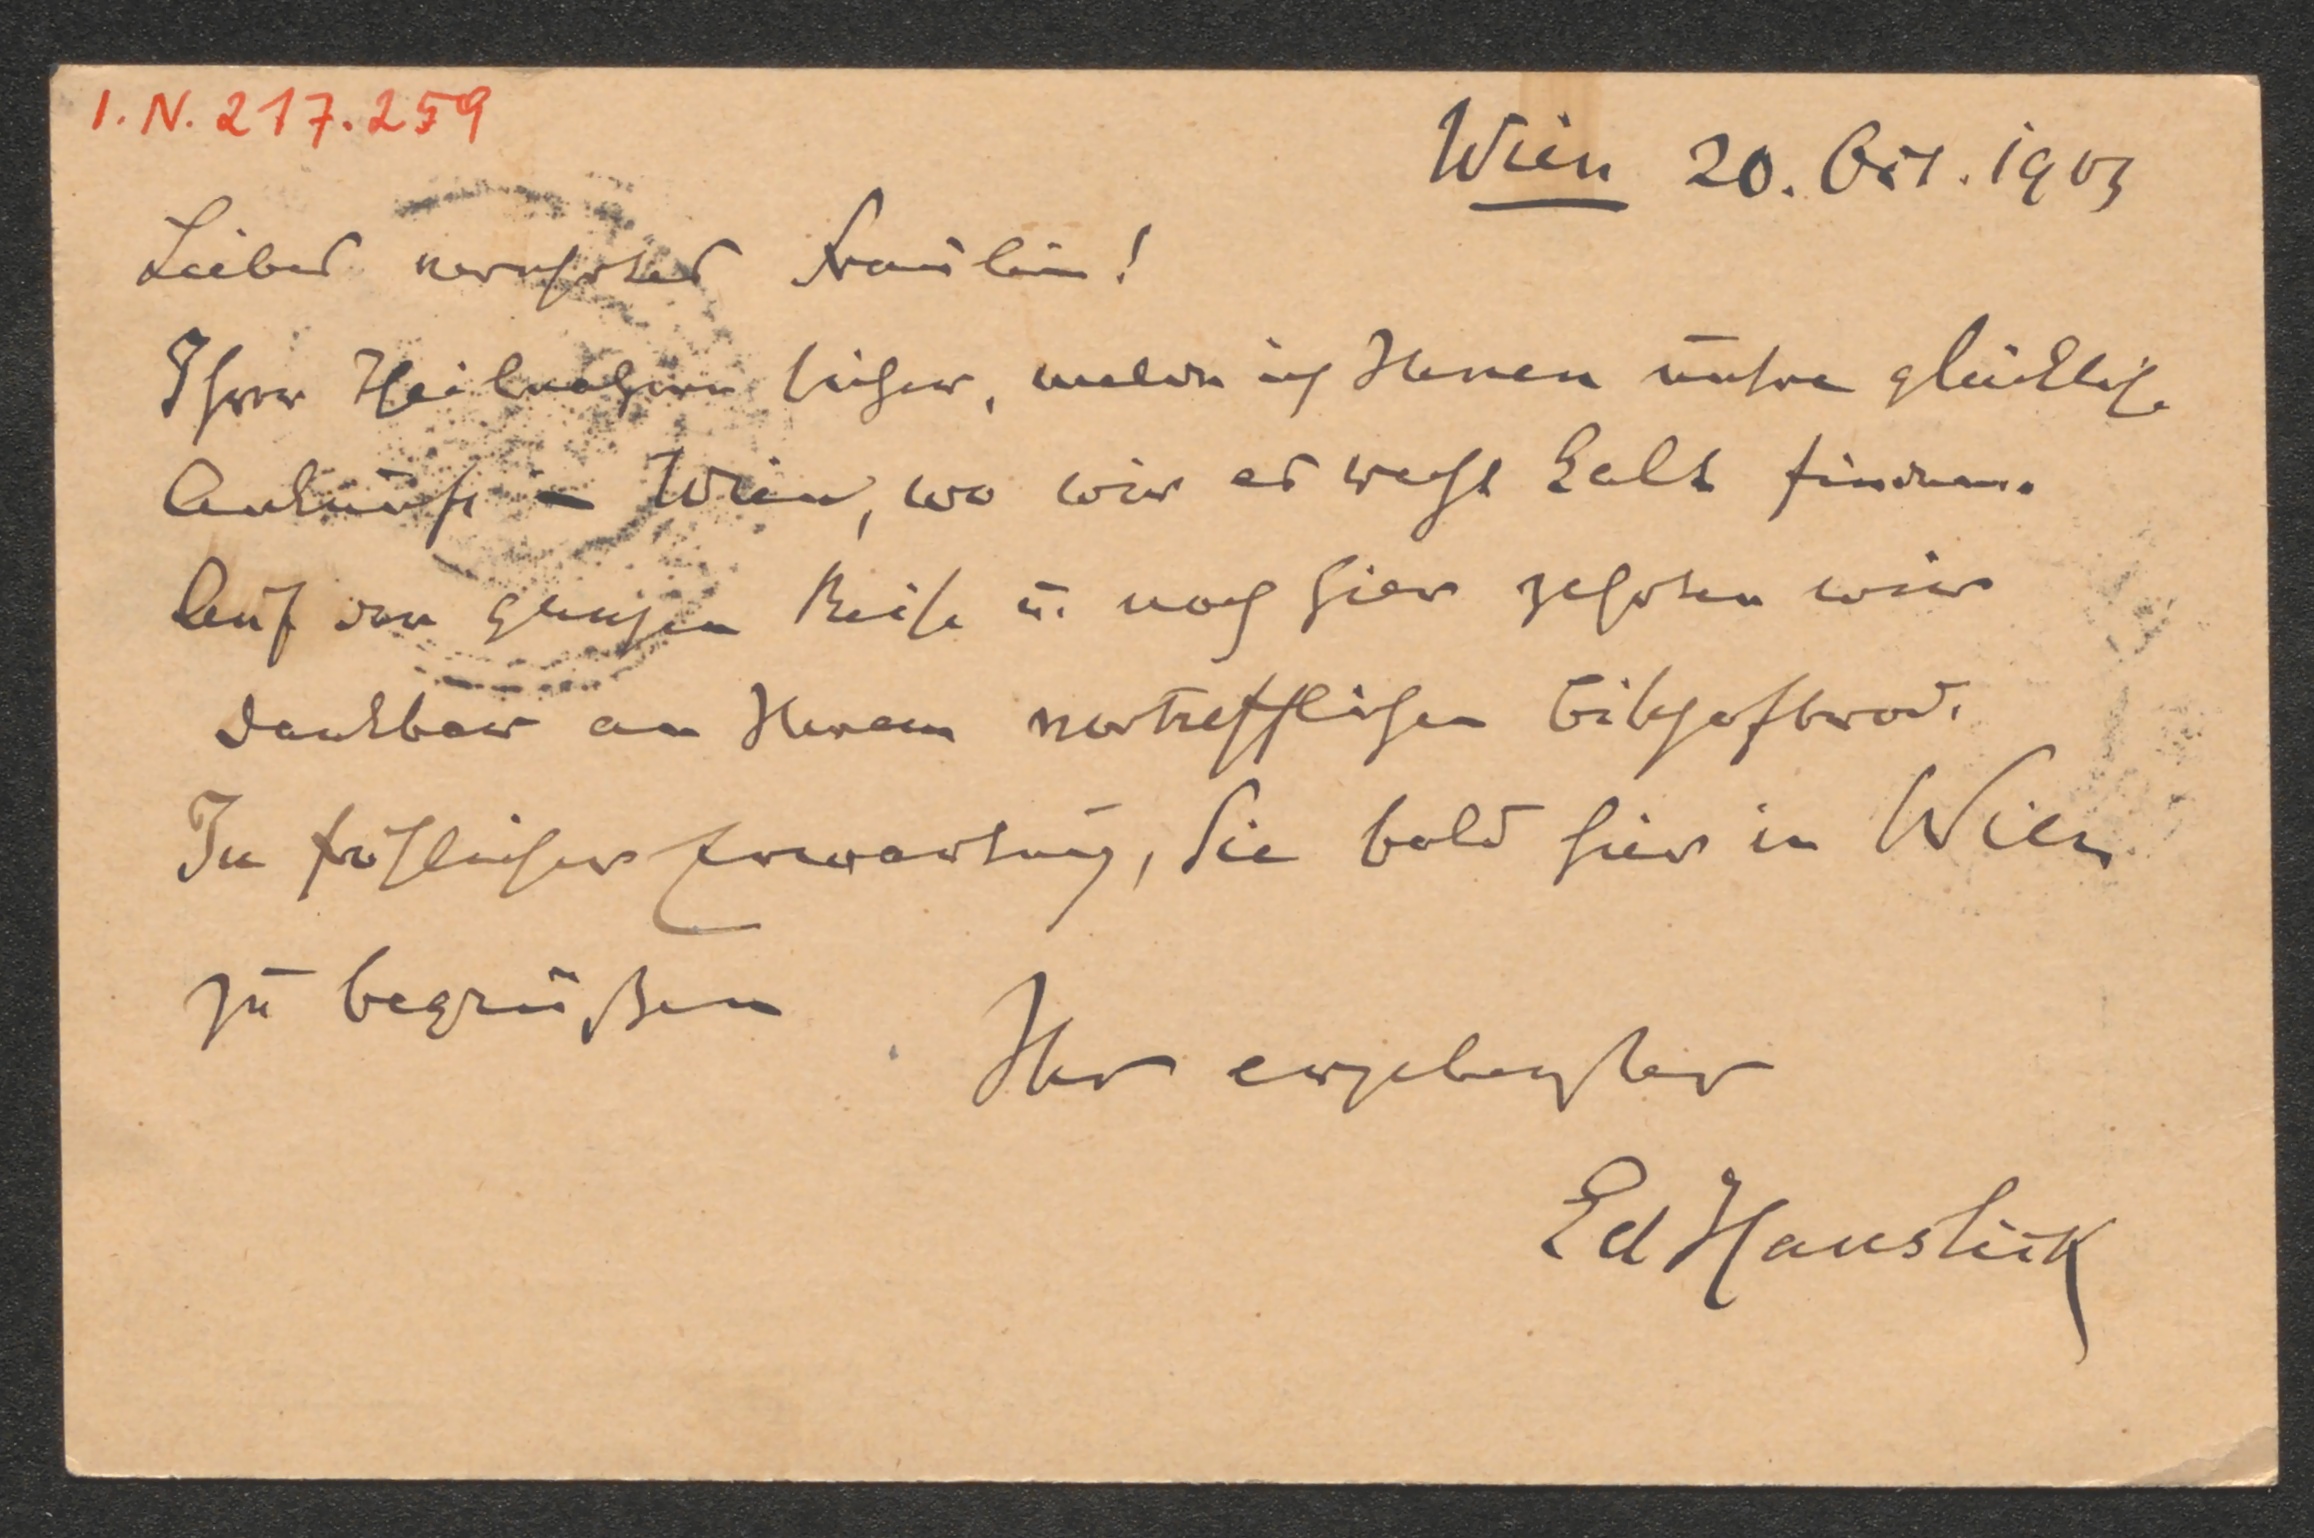 I. N. 217.259
Wien 20. Okt. 1903
Liebes verehrtes Fräulein!
Ihrer Theilnahme sicher, melde ich Ihnen unsre glückliche
Ankunft in Wien, wo wir es recht kalt finden.
Auf der ganzen Reise u. noch hier zehrten wir
dankbar an Ihrem vortrefflichen
In fröhlicher Erwartung, Sie bald hier in Wien
zu begrüßen
Ihr ergebenster
Ed Hanslick